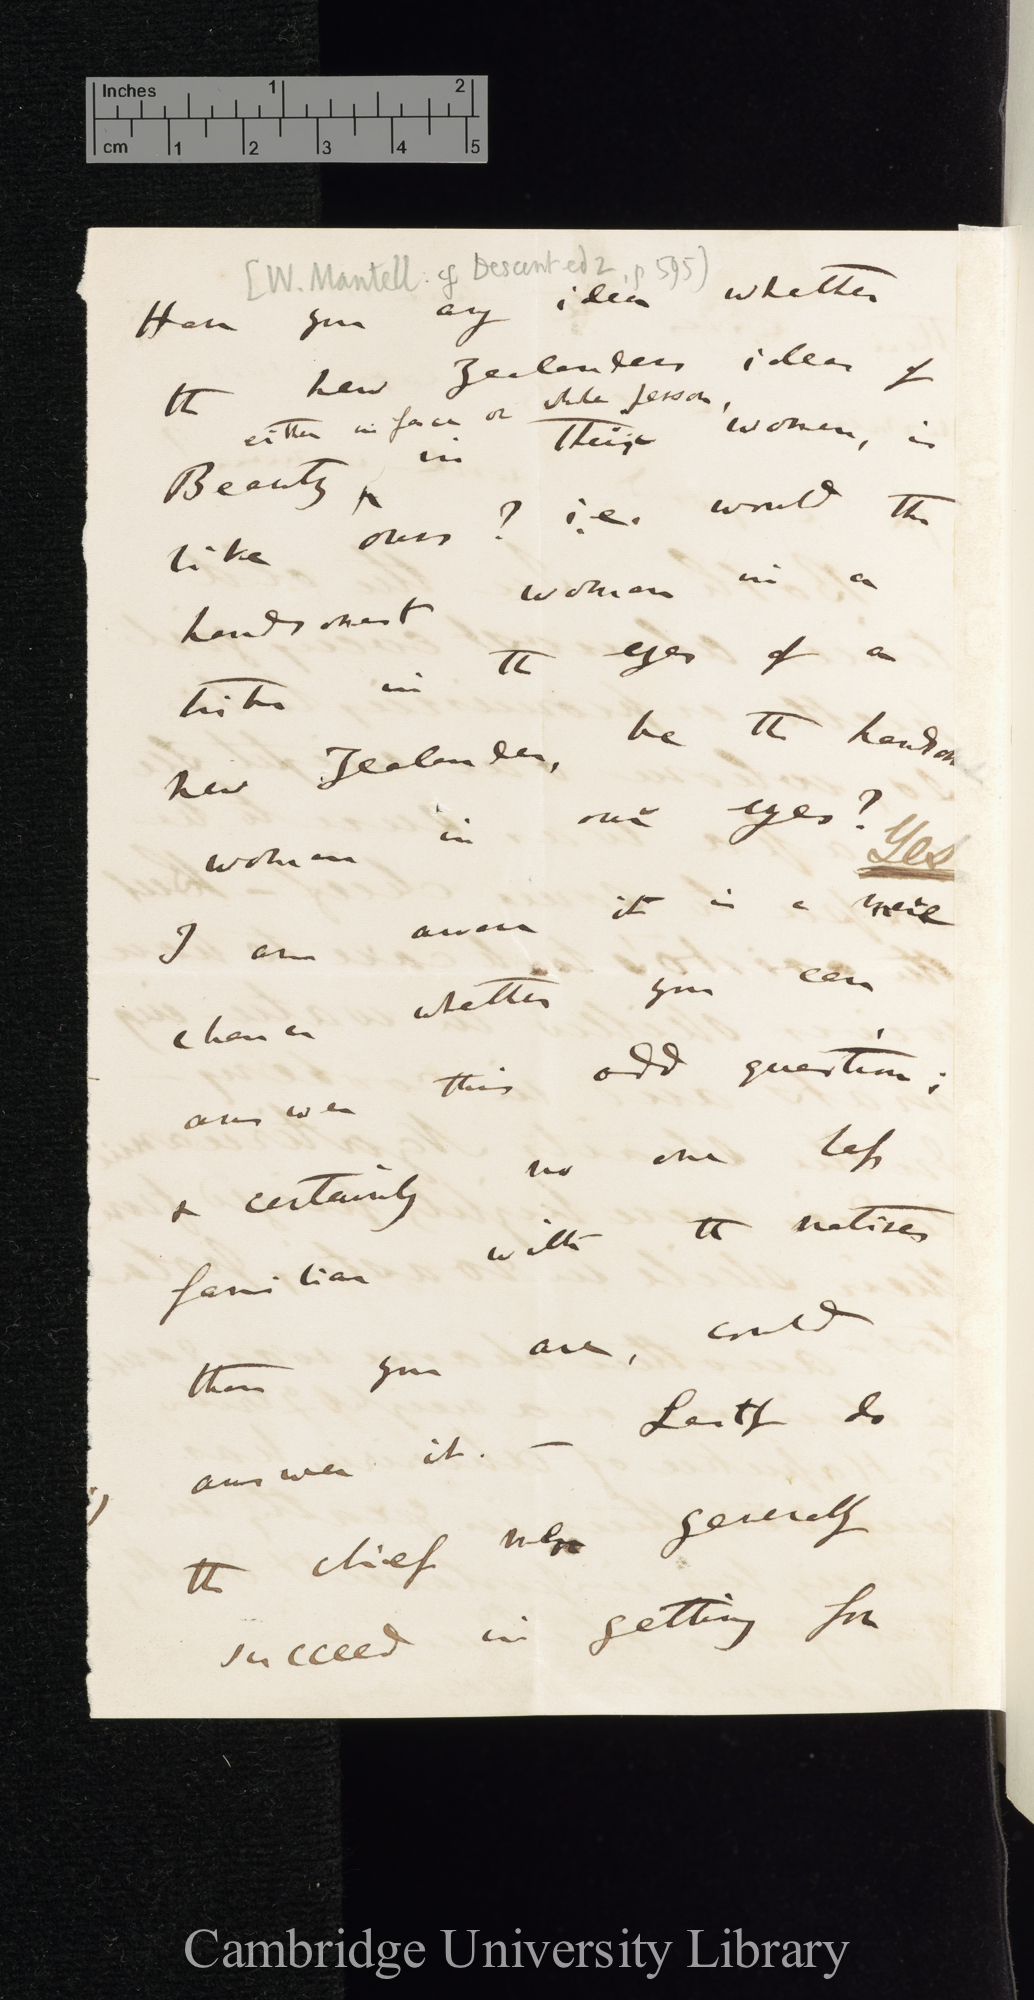 Inches 1 2
cm 1 2 3 4 5
[W. Mantell. cf Descent ed 2, p 595)
Have you any idea whether
the New Zealanders ideas of
either in face or whole person,
Beauty ^ in their women, is
like ours? i.e. would the
handsomest woman in a
tribe in the eyes of a
New Zealander, be the handsom
woman in our eyes? Yes
I am aware it is a mere
chance whether you can
answer this odd question;
& certainly no one less
familiar with the natives
than you are, could
answer it. — Lastly do
the chief men generally
succeed in getting for
Cambridge University Library